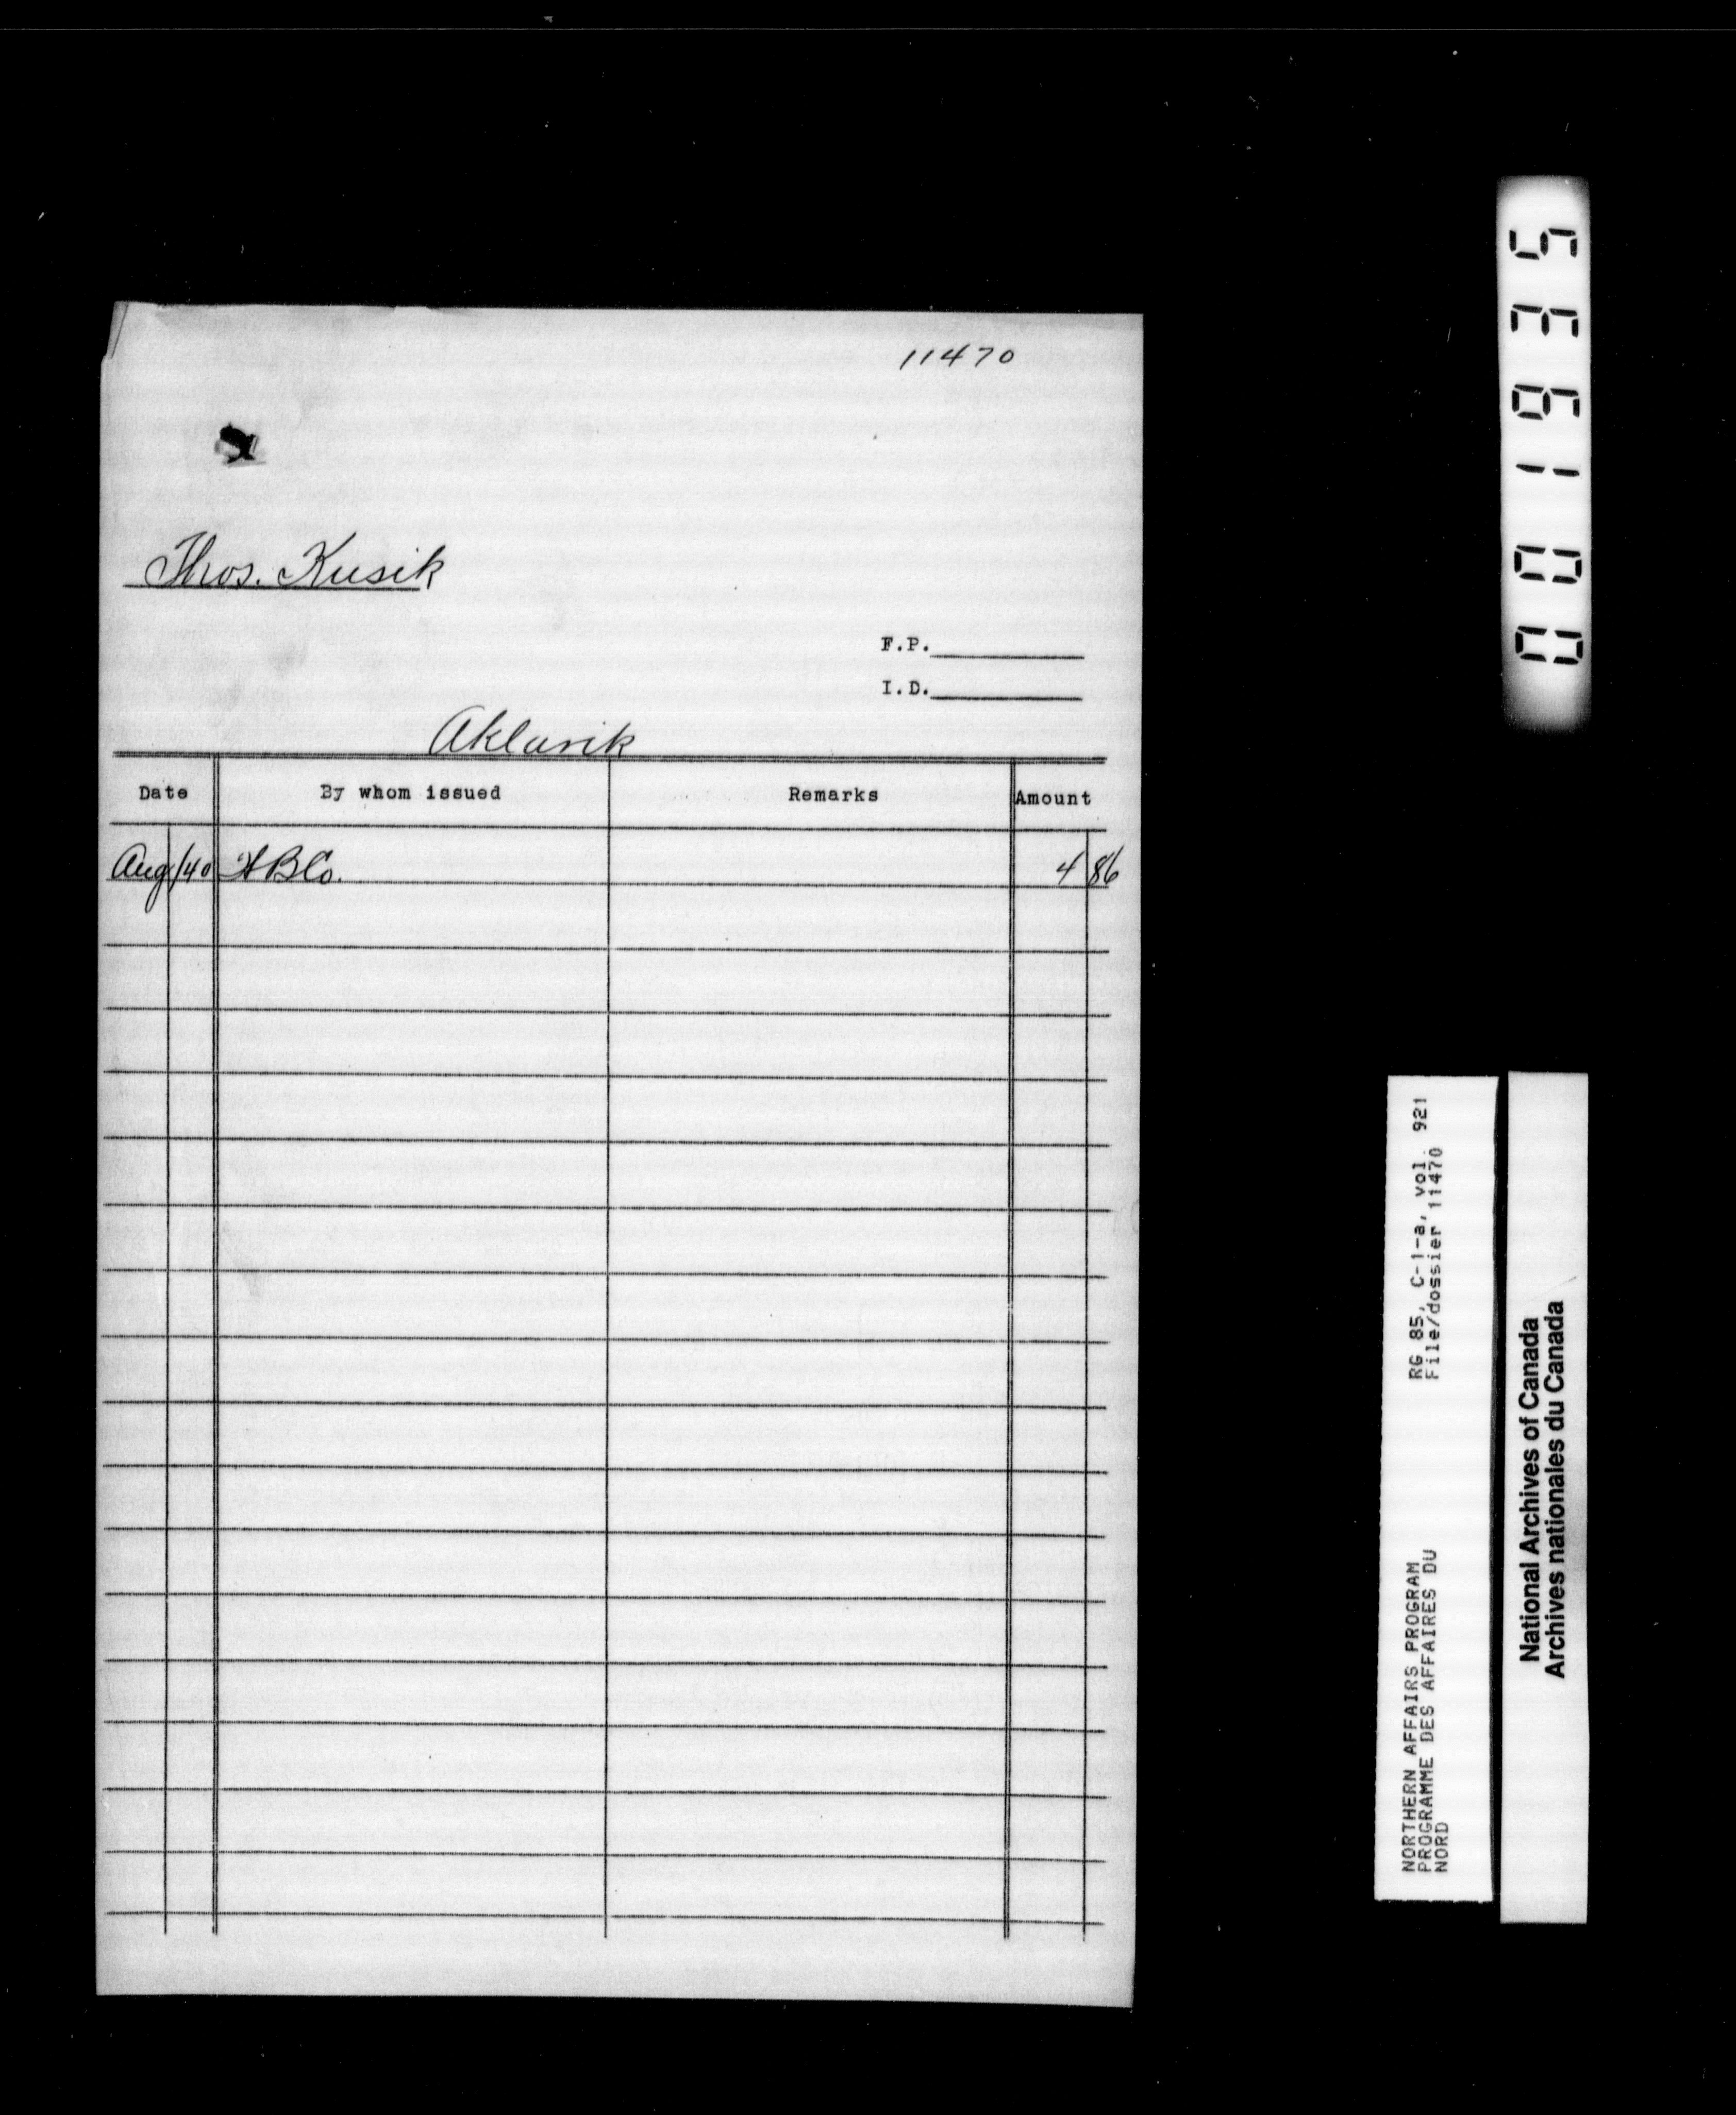 11470
Thos. Kusik
F.P.
I.D.
Aklavik
Date By whom issued Remarks Amount
Aug/40 HBCo. 4 86
001935
RG 85, C-1-a, vol. 921
File/dossier 11470
NORTHERN AFFAIRS PROGRAM
PROGRAMME DES AFFAIRES DU
NORD
National Archives of Canada
Archives nationales du Canada